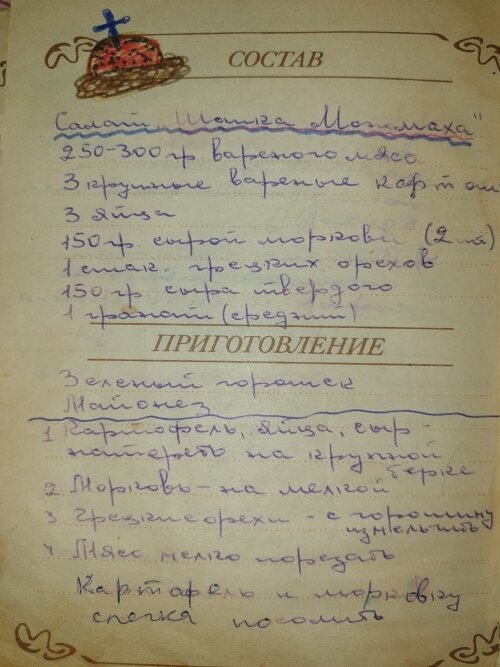 СОСТАВ
Салат „Шапка Мономаха"
250-300 гр вареного мяса
3 крупные вареные картош
3 яйца
150 гр. сырой моркови (2 шт)
1 стак. грецких орехов
150 гр сыра твердого
1 гранат (средний)
ПРИГОТОВЛЕНИЕ
Зеленый горошек
Майонез
1 Картофель, яйца, сыр -
натереть на крупной
терке
2 Морковь - на мелкой
3 Грецкие орехи - с горошину
измельчить
4 Мясо мелко порезать
Картофель и морковку
слегка посолить